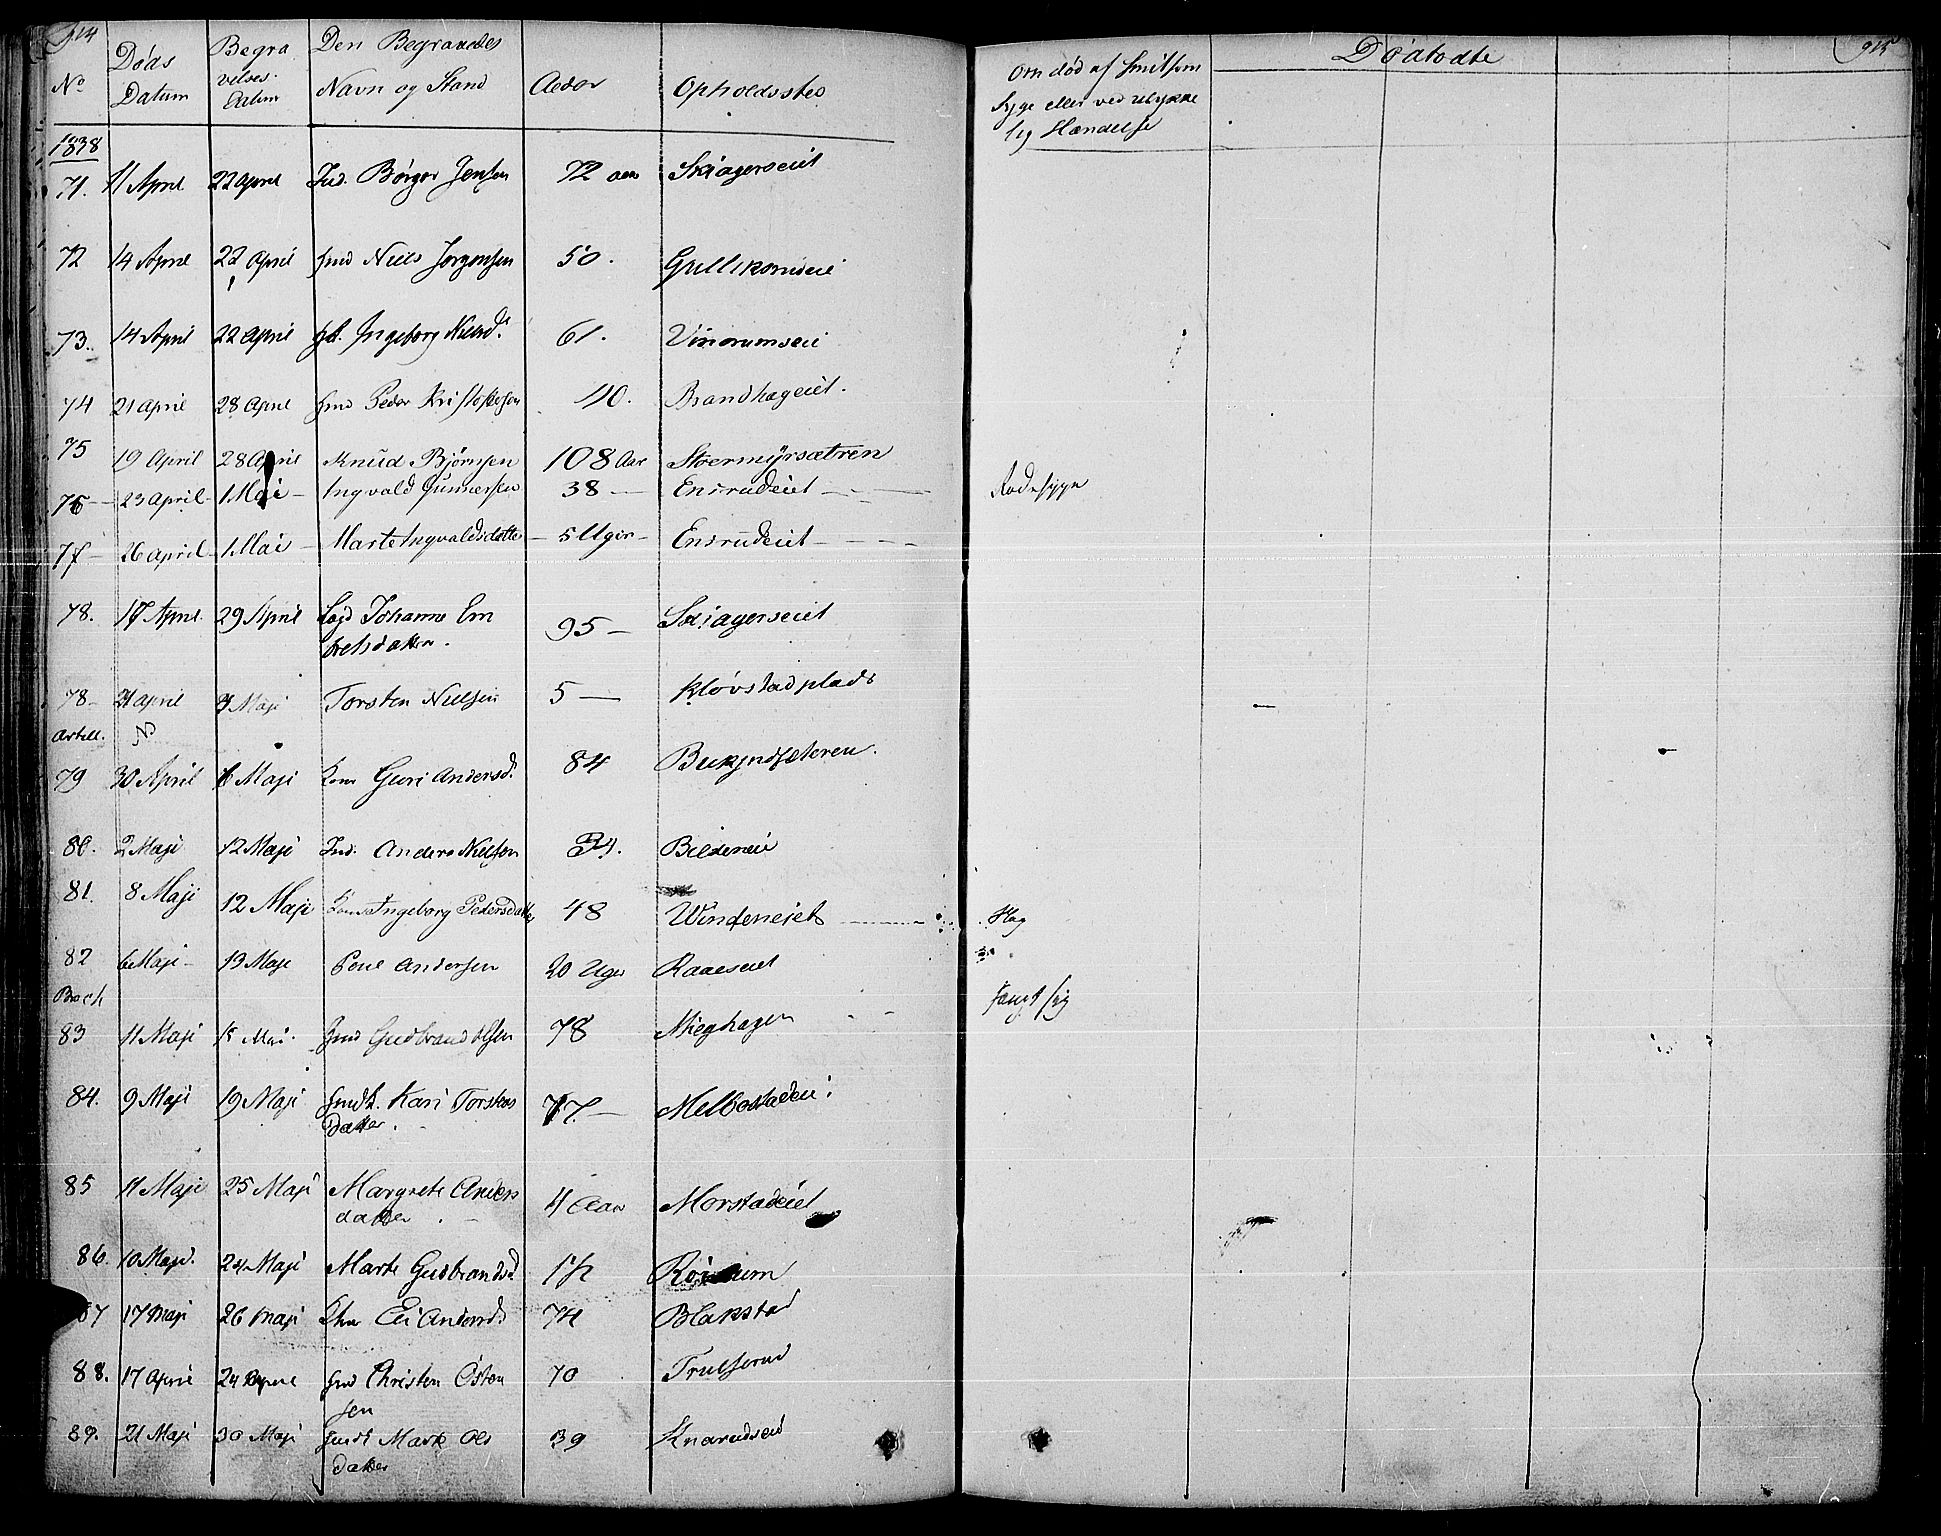 914
No
Døds Datum
Begra velses Datum
Den Begravedes Navn og Stand
Alder
Opholdssted
1838
71. 11 April 22 April Ind. Børger Jensen 72 aar Skiagerseiet
72 14 April 22 April Niels Jørgensen 50. Gullikerudeie
73. 14 April 22 April Ingeborg Nielsd. 61.
74 21 April 28 April Peder Kristofersen 40. Brandhageiet.
75 19 April 28 April Knud Bjørnsen 108 Aar Stoermÿrsætren
76 – 23 April – 1 Mai – Ingvald Gunnersen 38 – Ensrudeiet –
77 – 26 April – 1 Mai – Marte Ingvaldsdatter – 5 Uger – Ensrudeiet –
78. 17 April 29 April Johanne Em
bretsdatter. 95 – Skiagerseiet
78 – 21 April Maji Torsten Nielsen 5 – Kløvstadplads
79 30 April 6 Maji Kone Guri Andersd. 84
80. 2 Maji 12 Maji Ind. Anders Nielsen 34. Bildeneie
81. 8 Maji 12 Maji Kone Ingeborg Pedersdatter 48 Windeneiet
82 6 Maji – 13 Maji Poul Andersen 20 Uger Raaeseiet
83 11 Maji Mai. Gudbrand Olsen 78
84. 9 Maji 19 Maji Kari Torstens
Datter. 77. – Melbostadeie
85 11 Maji 25 Maji Margrete Anders
datter. 4 Aar Morstadeiet
86. 10 Maji. 24 Maji Marte Gudbrandsd
87 17 Maji 26 Maji Eli Andersd. 74 Blakstad
88. 17 April 24 April Christen Østen
sen 70 Trulserud
89. 21 Maji 30 Maji Marte Ols
Datter 39 Knarudseie
915
Om død af Smitsom
Syge eller ved ulykke
lig Hændelse
Dødfødte
Radesyge